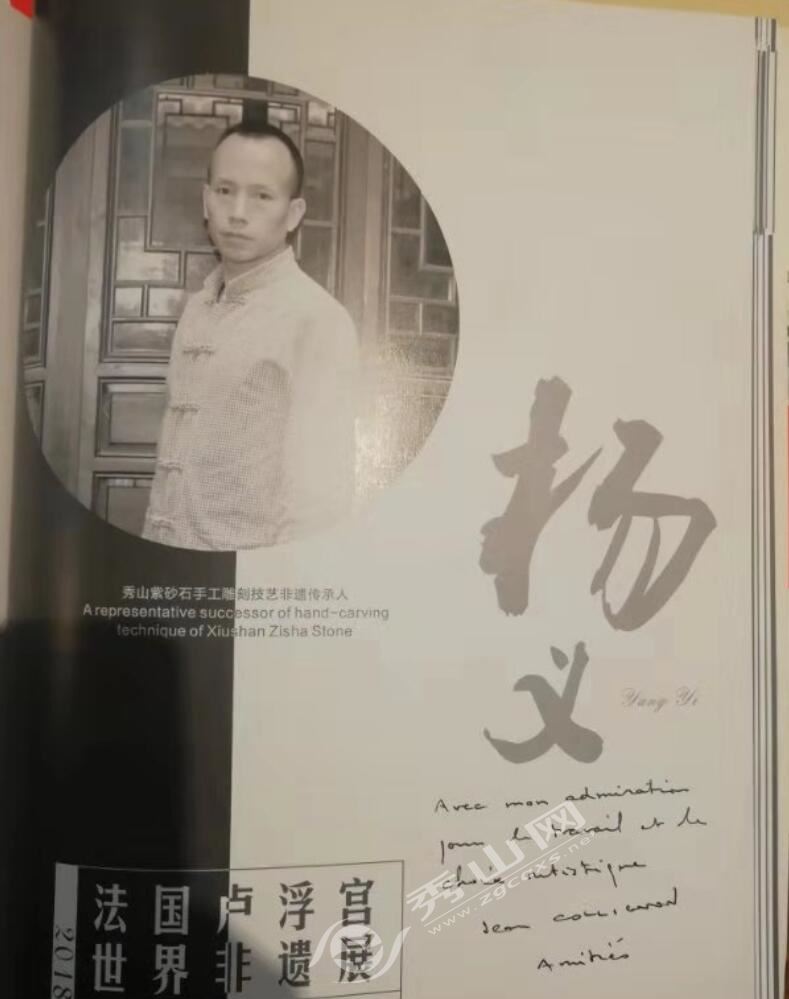 秀山紫砂石手工雕刻技艺非遗传承人
A representative successor of hand-carving
technique of Xiushan Zisha Stone
杨
义
Yang Yi
Avec mon admiration
pour le travail et le
choix artistique
Jean
Amitiés
2018
法国卢浮宫
世界非遗展
秀山网
www.zgcqxs.net